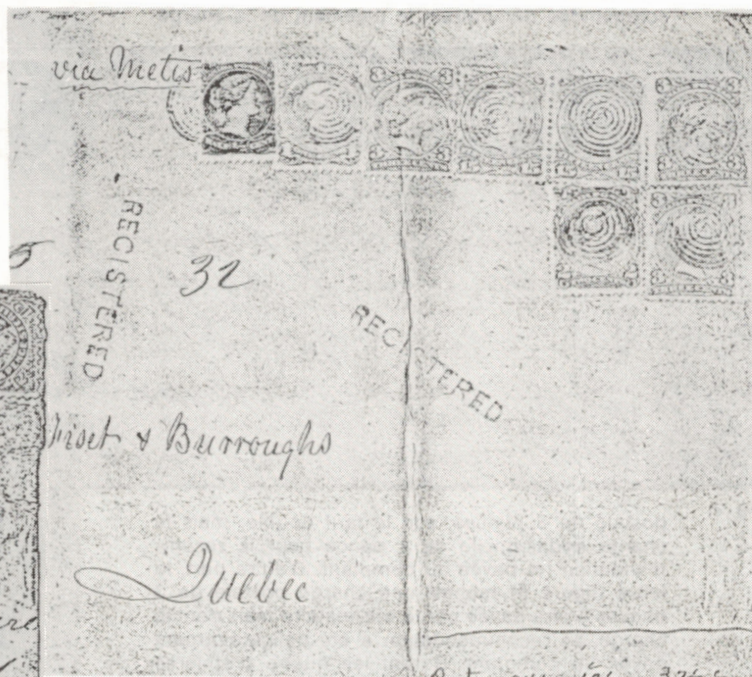 via Metis
REGISTERED
32
REGISTERED
Fiset & Burroughs
Quebec